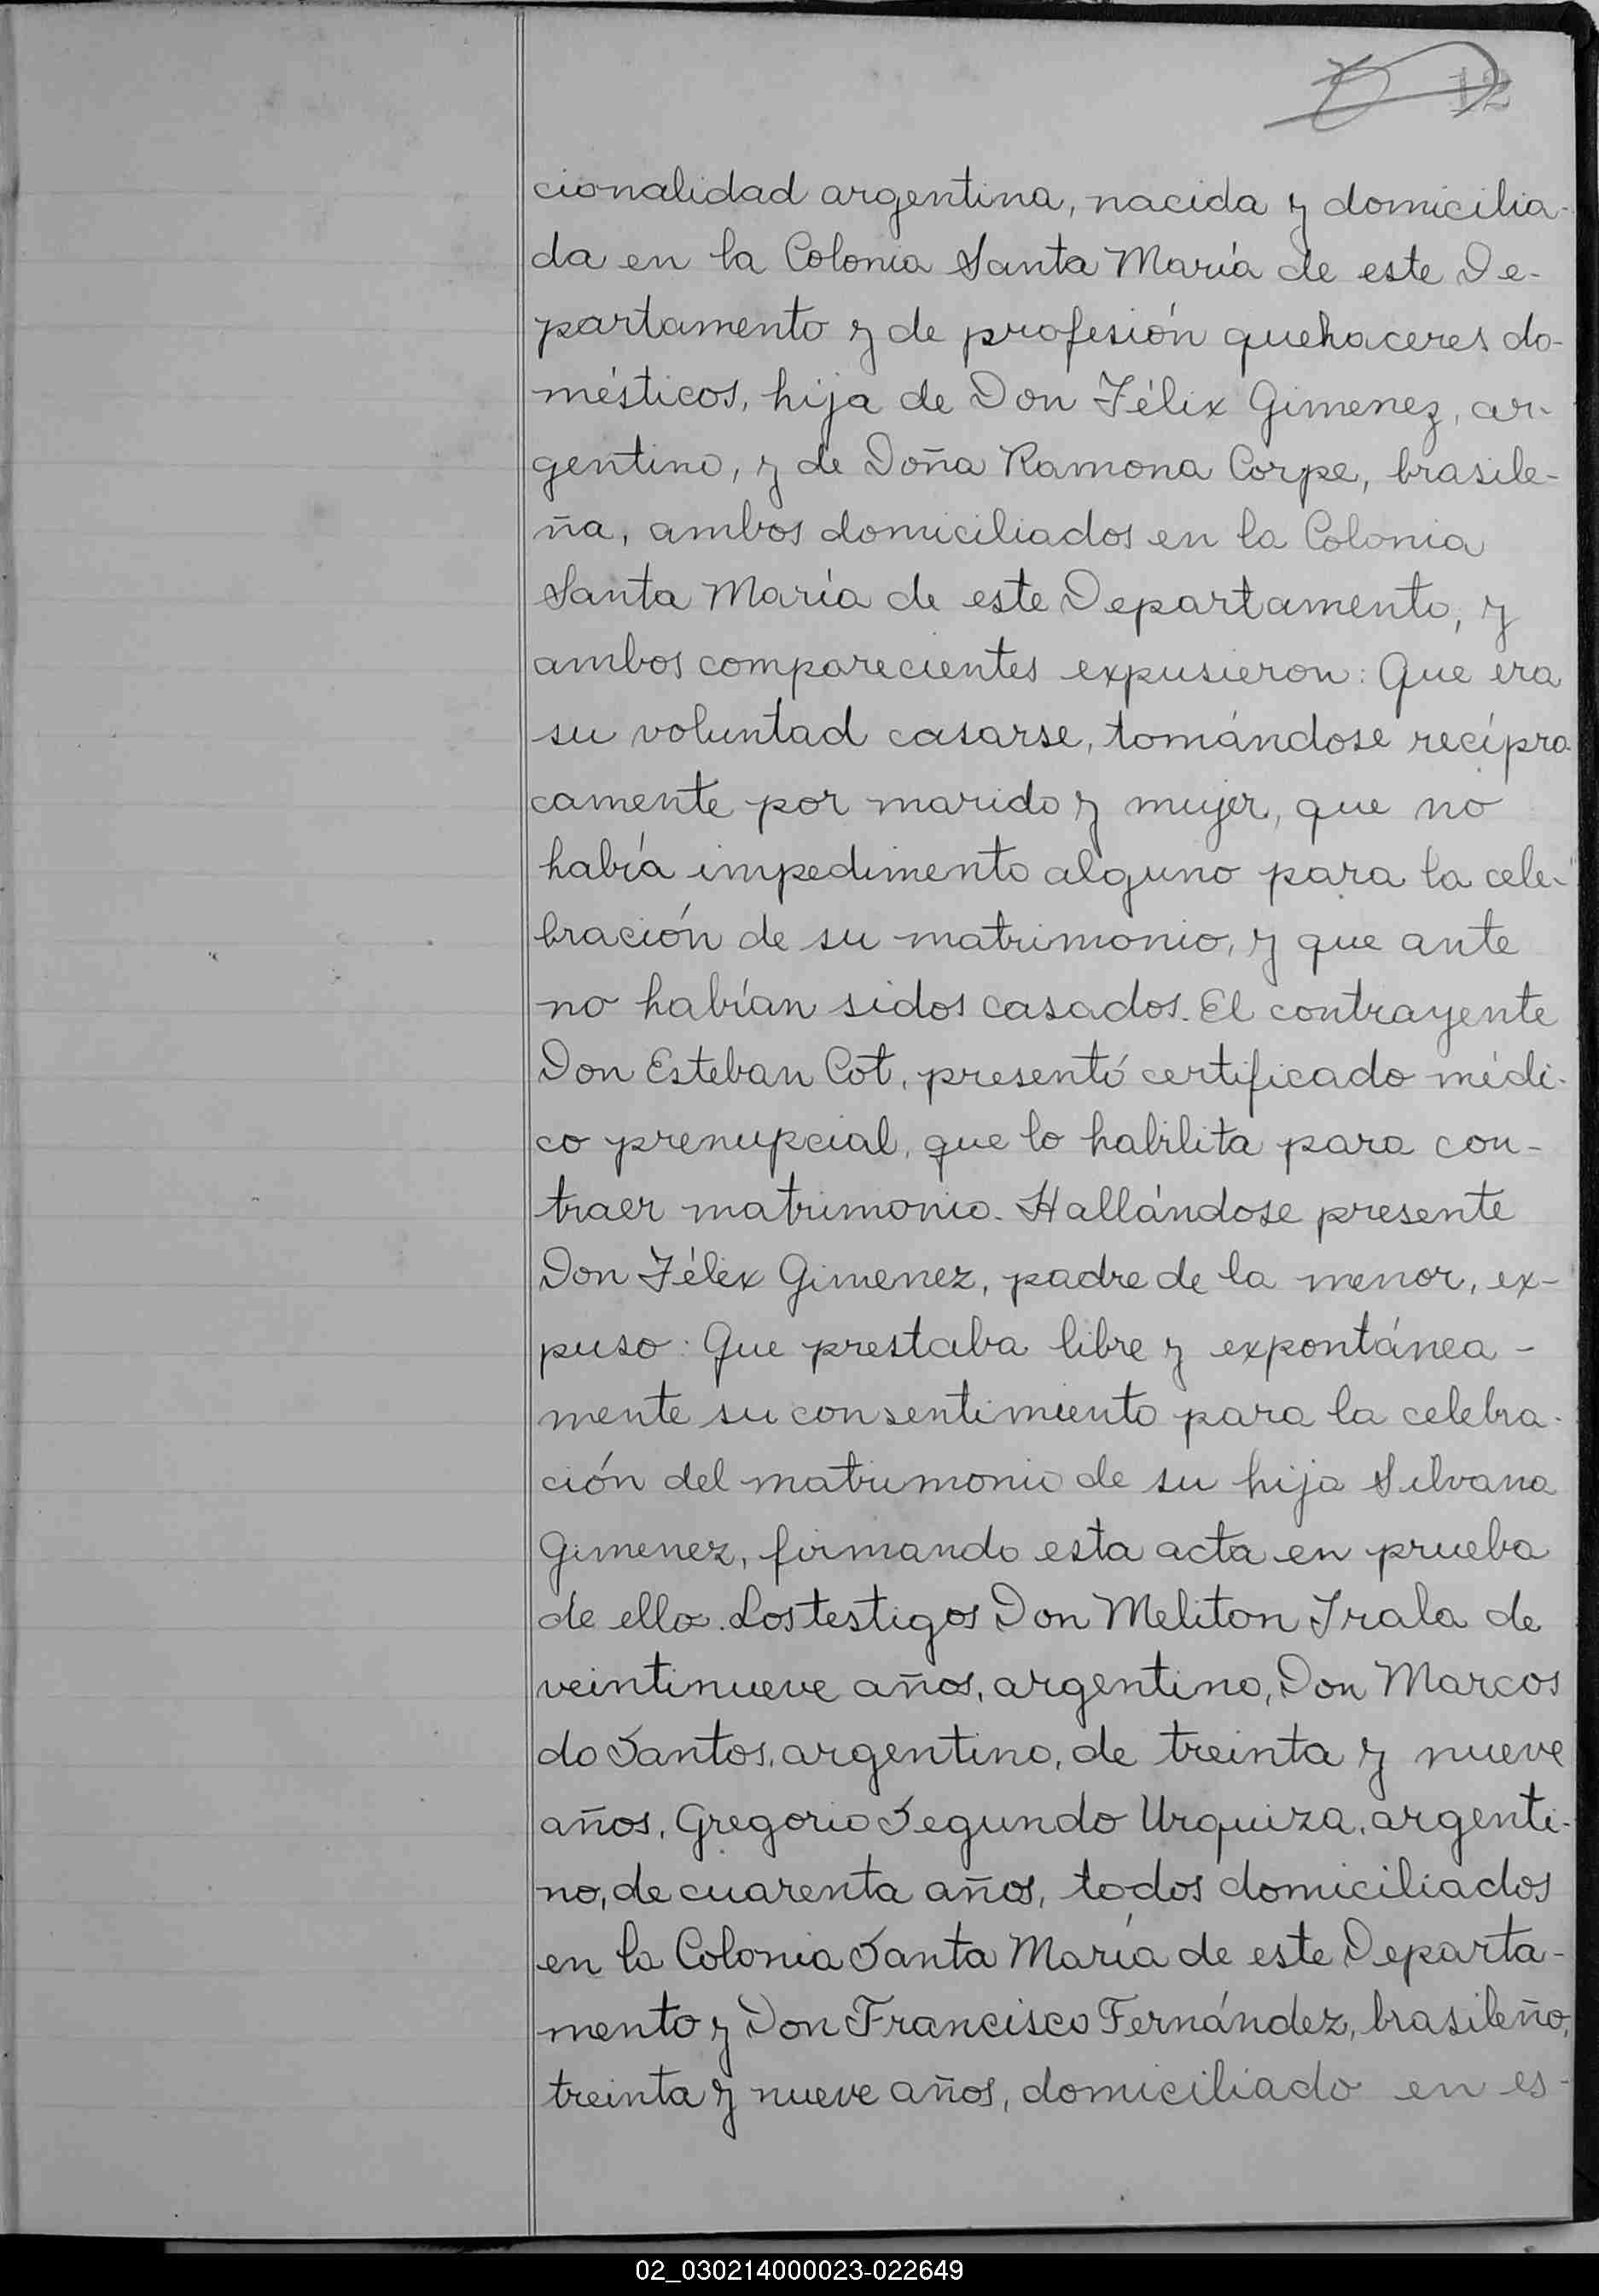 12
cionalidad argentina, nacida y domicilia-
da en la Colonia Santa María de este De-
partamento y de profesión quehaceres do-
mésticos, hija de Don Félix Gimenez, ar-
gentino, y de Doña Ramona Corpe, brasile-
ña, ambos domiciliados en la Colonia
Santa María de este Departamento, y
ambos comparecientes expusieron: Que era
su voluntad casarse, tomándose recípro-
camente por marido y mujer, que no
había impedimento alguno para la cele-
bración de su matrimonio, y que ante
no habían sidos casados. El contrayente
Don Esteban Cot, presentó certificado médi-
co prenupcial, que lo habilita para con-
traer matrimonio. Hallándose presente
Don Félix Gimenez, padre de la menor, ex-
puso: Que prestaba libre y expontánea-
mente su consentimiento para la celebra-
ción del matrimonio de su hija Silvana
Gimenez, firmando esta acta en prueba
de ello. Los testigos Don Meliton Irala de
veintinueve años, argentino, Don Marcos
do Santos, argentino, de treinta y nueve
años, Gregorio Segundo Urquiza, argenti-
no, de cuarenta años, todos domiciliados
en la Colonia Santa María de este Departa-
mento y Don Francisco Fernández, brasileño,
treinta y nueve años, domiciliado en es-
02_030214000023-022649